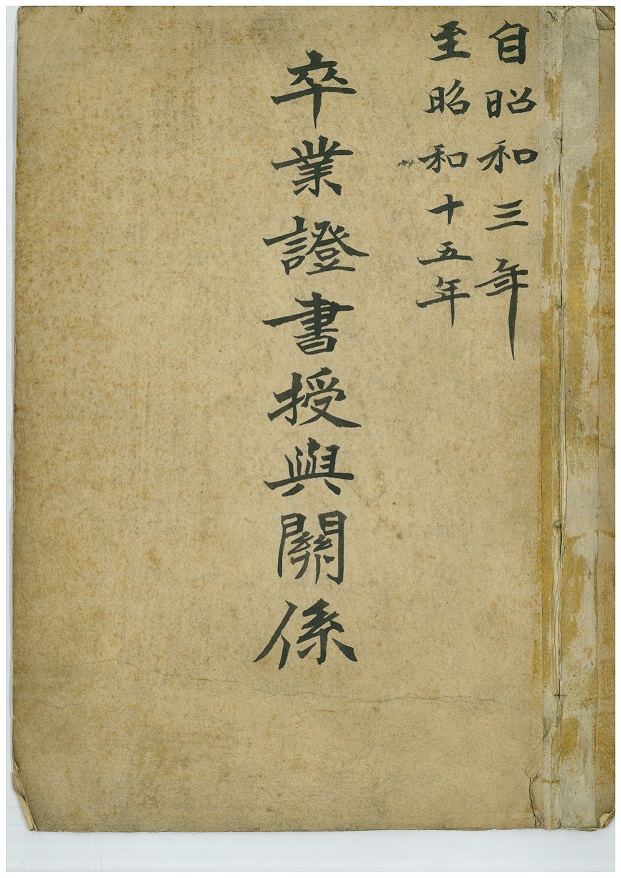 自昭和三年
至昭和十五年
卒業證書授與關係